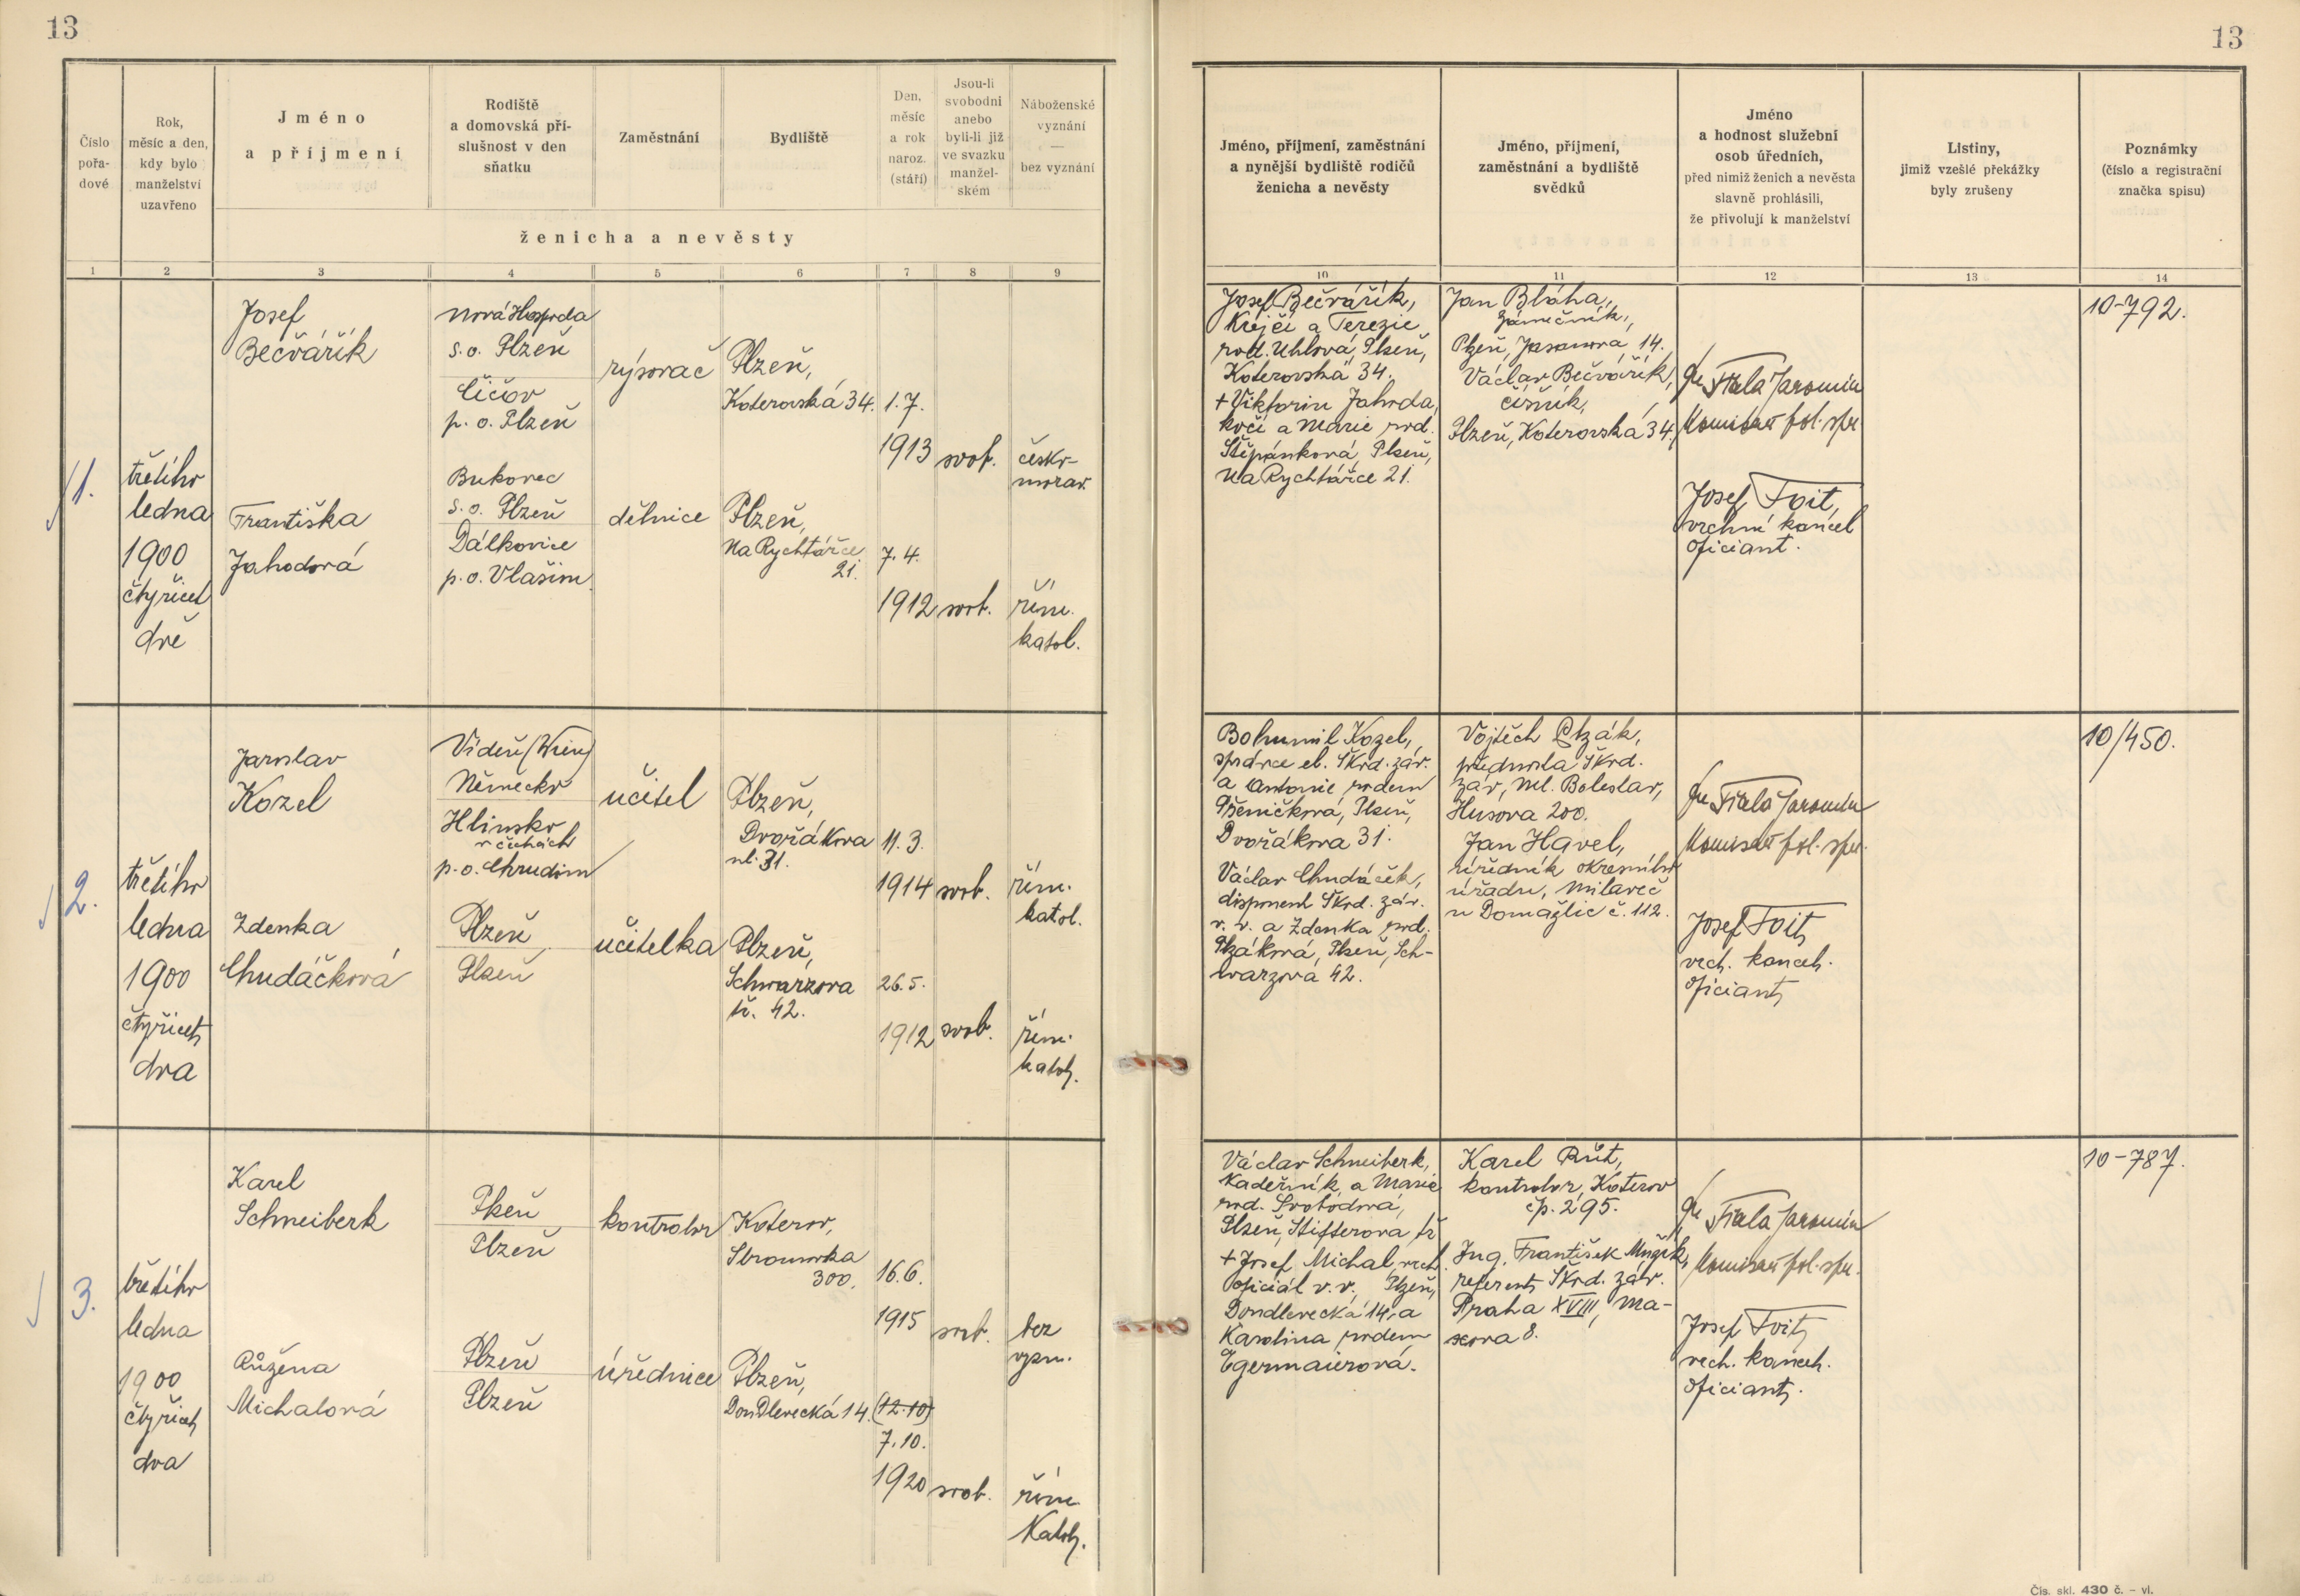 13
13
Číslo
pořa-
dové
Rok,
měsíc a den,
kdy bylo
manželství
uzavřeno
Jméno
a příjmení
Rodiště
a domovská pří-
slušnost v den
sňatku
Zaměstnání
Bydliště
Den,
měsíc
a rok
naroz.
(stáří)
Jsou-li
svobodni
anebo
byli-li již
ve svazku
manžel-
ském
Náboženské
vyznání
—
bez vyznání
ženicha a nevěsty
1 2 3 4 5 6 7 8 9
Jméno, příjmení, zaměstnání
a nynější bydliště rodičů
ženicha a nevěsty
Jméno, příjmení,
zaměstnání a bydliště
svědků
Jméno
a hodnost služební
osob úředních,
před nimiž ženich a nevěsta
slavně prohlásili,
že přivolují k manželství
Listiny,
jimiž vzešlé překážky
byly zrušeny
Poznámky
(číslo a registrační
značka spisu)
10 11 12 13 14
1.
třetího
ledna
1900
čtyřicet
dvě
Josef
Bečvářík
Nová Hospoda
s. o. Plzeň
Čičov
p. o. Plzeň
rýsovač
Plzeň,
Koterovská 34.
1. 7.
1913
svob.
česko-
morav.
Františka
Jahodová
Bukovec
s. o. Plzeň
Dálkovice
p. o. Vlašim
dělnice
Plzeň,
Na Rychtářce
21.
7. 4.
1912
svob.
řím.
katol.
Josef Bečvářík,
Krejčí a Terezie
rod. Uhlová, Plzeň,
Koterovská 34.
+ Viktorin Jahoda,
kočí a Marie rod.
Štěpánková, Plzeň,
Na Rychtářce 21.
Jan Bláha,
zámečník,
Plzeň, Jasanová 14.
Václav Bečvářík,
číšník,
Plzeň, Koterovská 34.
Fiala Jaromír
Komisař pol. spr.
Josef Foit,
vrchní kancel
oficiant.
10-792.
2.
třetího
ledna
1900
čtyřicet
dva
Jaroslav
Kozel
Vídeň (Wien)
Německo
Hlinsko
v Čechách
p. o. Chrudim
učitel
Plzeň,
Dvořákova
ul. 31.
11. 3.
1914
svob.
řím.
katol.
Zdenka
Chudáčková
Plzeň
Plzeň
učitelka
Plzeň,
Schwarzova
tř. 42.
26. 5.
1912
svob.
řím.
katol.
Bohumil Kozel,
správce el. Škod. záv.
a Antonie rodem
Pšeničková, Plzeň,
Dvořákova 31.
Václav Chudáček,
disponent Škod. záv.
v. v. a Zdenka rod.
Ptáková, Plzeň, Sch-
warzova 42.
Vojtěch Pták,
přednosta Škod.
záv, Ml. Boleslav,
Husova 200.
Jan Havel,
úředník okresního
úřadu, Milaveč
u Domažlic č. 112.
Fiala Jaromír
Komisař pol. spr.
Josef Foit,
vrch. kancel.
oficiant,
10/450.
3.
třetího
ledna
1900
čtyřicet
dva
Karel
Schneiberk
Plzeň
Plzeň
kontrolor
Koterov,
Stromovka
300.
16. 6.
1915
svob.
bez
vyzn.
Růžena
Michalová
Plzeň
Plzeň
úřednice
Plzeň,
Doudlevecká 14.
(12. 10)
7. 10.
1920
svob.
řím.
Katol.
Václav Schneiberk,
Kadeřník, a Marie
rod. Svobodová,
Plzeň, Stifterova tř
+ Josef Michal, vrch.
oficiál v. v., Plzeň,
Doudlevecká 14, a
Karolina rodem
Egermaierová.
Karel Růt,
kontrolor, Koterov
čp. 295.
Ing. František Mužík,
referent Škod. záv.
Praha XVIII, Ma-
xova 8.
Fiala Jaromír
Komisař pol. spr.
Josef Foit,
vrch. kancel.
oficiant.
10-787.
Čís. skl. 430 č. – vl.